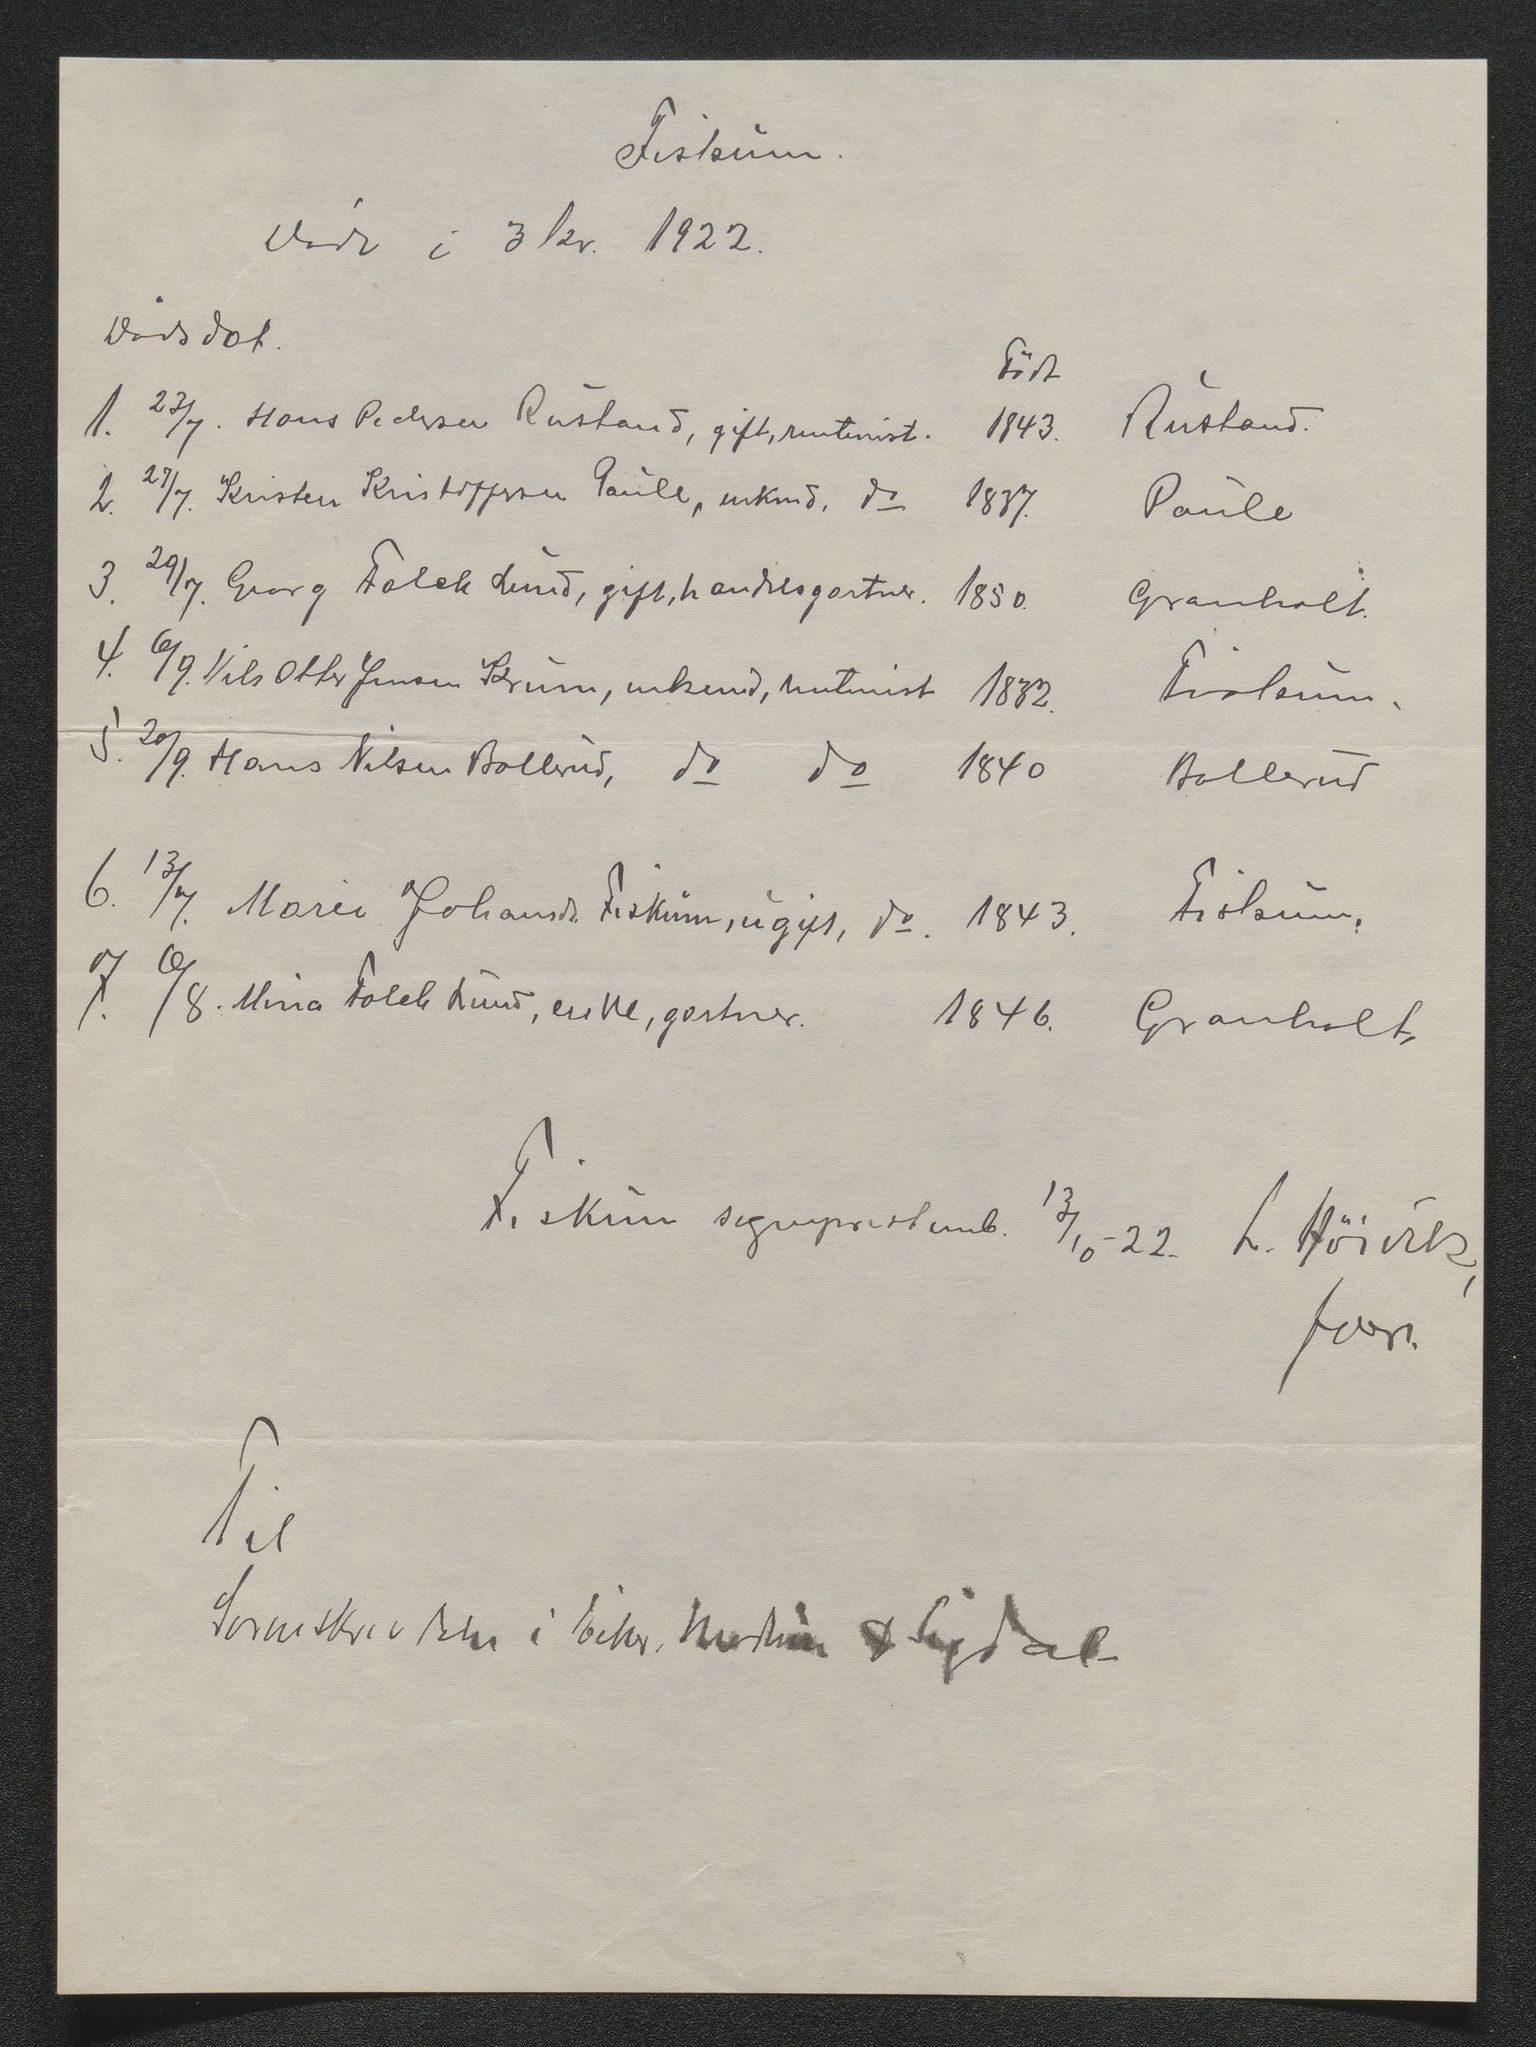 Fiskum.
Døde i 3 kv. 1922.
Dødsdat.
Født
1. 23/7. Hans Pedersen Rustand, gift, rentenist. 1843. Rustand.
2. 27/7. Kristen Kristoffersen Paule, enkmd. do 1837. Paule
3. 29/7. Georg Falck Lund, gift, handelsgartner. 1850. Granholt.
4. 6/9. Nils Otter Jensen Krum, enkemd, rentenist 1832. Fiskum.
5. 20/9. Hans Nilsen Bollerud, do do 1840 Bollerud
6. 13/7. Maren Johansd. Fiskum, ugift, do. 1843. Fiskum.
7. 6/8. Mina Falck Lund, enke, gartner. 1846. Granholt,
Fiskum sogneprestemb. 13/10-22. L. Höivik,
Til
Sorenskriveren i Eiker, Modum & Sigdal